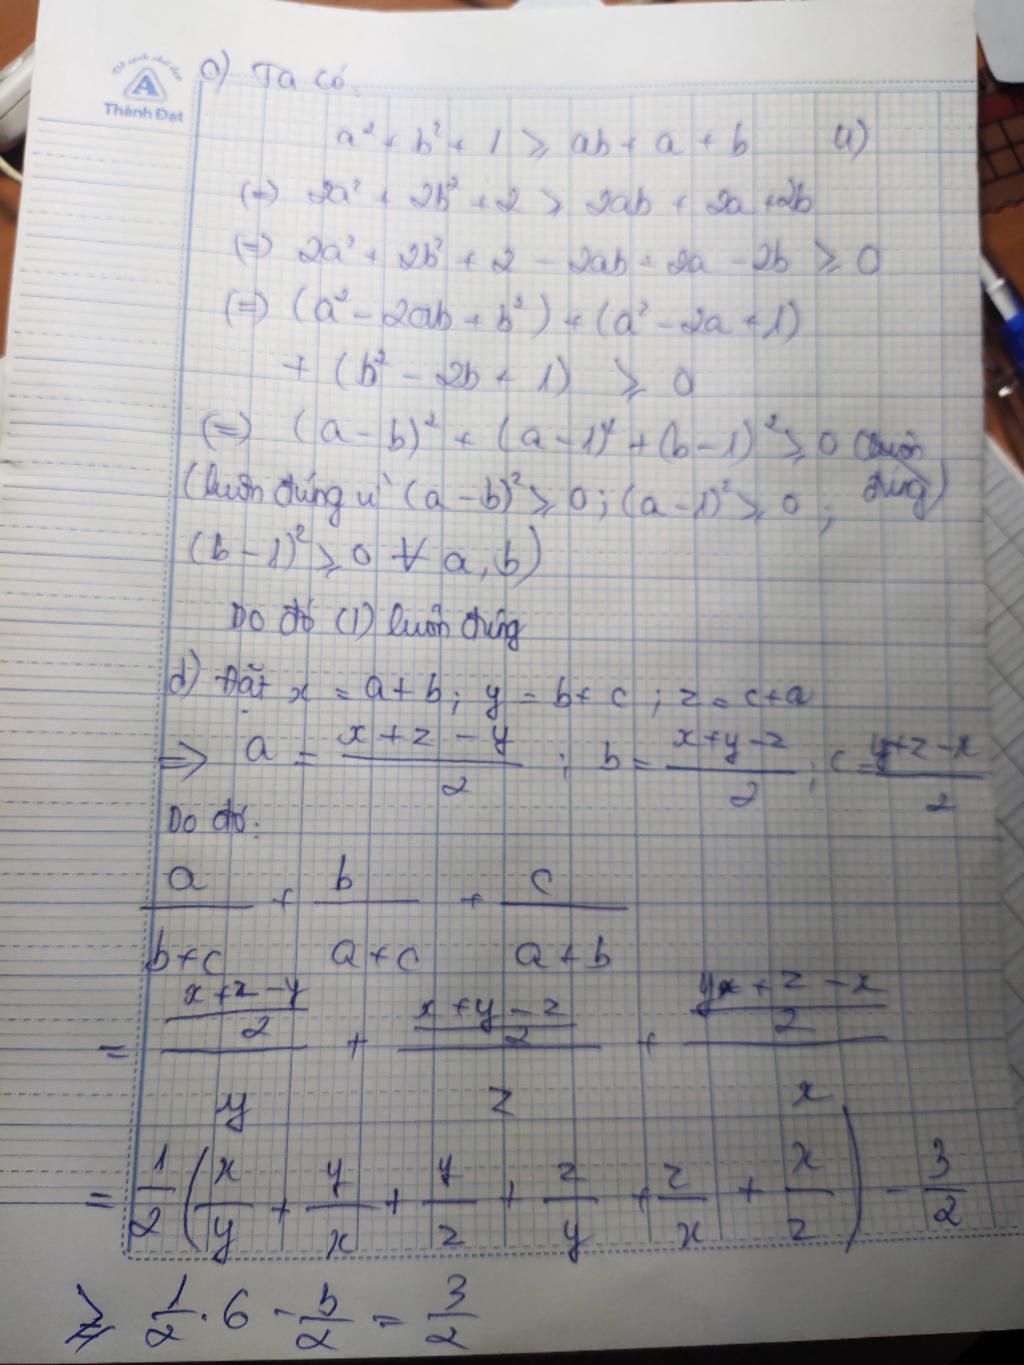 Vở sạch chữ đẹp
A
Thành Đạt
a) Ta có:
a² + b² + 1 ≥ ab + a + b (1)
(=) 2a² + 2b² + 2 ≥ 2ab + 2a + 2b
(=) 2a² + 2b² + 2 - 2ab - 2a - 2b ≥ 0
(=) (a² - 2ab + b²) + (a² - 2a + 1)
+ (b² - 2b + 1) ≥ 0
(=) (a - b)² + (a - 1)² + (b - 1)² ≥ 0 (luôn đúng)
(luôn đúng vì (a - b)² ≥ 0 ; (a - 1)² ≥ 0 ;
(b - 1)² ≥ 0 ∀ a, b)
Do đó (1) luôn đúng
d) Đặt x = a + b ; y = b + c ; z = c + a
=> a = (x + z - y)/2 ; b = (x + y - z)/2 ; c = (y + z - x)/2
Do đó:
a/(b + c) + b/(a + c) + c/(a + b)
= ((x + z - y)/2)/y + ((x + y - z)/2)/z + ((y + z - x)/2)/x
= 1/2 (x/y + y/x + y/z + z/y + z/x + x/z) - 3/2
≥ 1/2 . 6 - 3/2 = 3/2